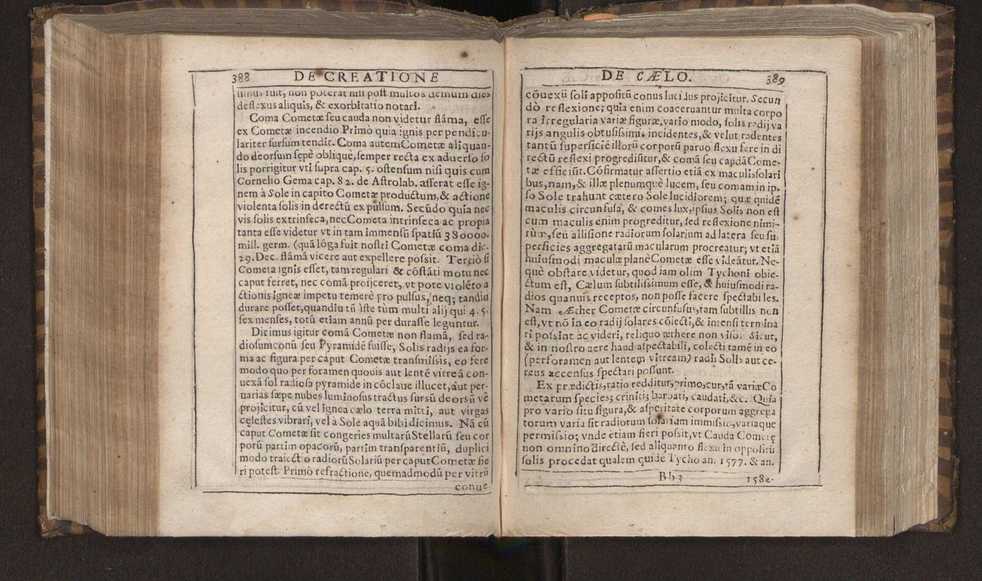 388 DE CREATIONE
minus fuit, non poterat nisi post multos demum dies
deflexus aliquis, & exorbitatio notari.
Coma Cometæ seu cauda non videtur flāma, esse
ex Cometæ incendio Primò quia ignis per pendicu-
lariter sursum tendit. Coma autem Cometæ aliquan-
do deorsum sepè oblique, semper recta ex aduerso so
lis porrigitur vti supra cap. 5. ostensum nisi quis cum
Cornelio Gema cap. 82. de Astrolab. asserat esse ig-
nem à Sole in capito Cometæ productum, & actione
violenta solis in derectū ex pulsum. Secūdo quia nec
vis solis extrinseca, nec Cometa intrinseca ac propia
tanta esse videtur vt in tam immensū spatiū 380000.
mill. germ. (quā lōga fuit nostri Cometæ coma dic.
29. Dec. flāmā vicere aut expellere possit. Tergiò si
Cometa ignis esset, tam regulari & cōstāti motu nec
caput ferret, nec comā proijceret, vt pote violēto a
ctionis igneæ impetu temerè pro pulsus, neq; tandiu
durare posset, quandiu tū iste tum multi alij qui 4. 5.
sex menses, totū etiam annū per durasse leguntur.
Dicimus igitur comā Cometæ non flamā, sed ra-
diosum conū seu Pyramidē fuisse, Solis radijs ea for-
ma ac figura per caput Cometæ transmissis, eo fere
modo quo per foramen quouis aut lentē vitreā con-
uexā sol radiosā pyramide in cōclaue illucet, aut per-
uarias sæpe nubes luminosus tractus sursū deorsū vè
proijcitur, cū vel ignea cælo terra mitti, aut virgas
celestes vibrari, vel à Sole aquā bibi dicimus. Nā cū
caput Cometæ sit congeries multarū Stellarū seu cor
porū partim opacorū, partim transparentiū, duplici
modo traiecto radiorū Solariū per caput Cometæ fie
ri potest. Primò refractione, quemadmodū per vitrū
conue
DE CÆLO. 389
cōuexū soli appositū conus lucidus projicitur. Secun
dò reflexione; quia enim coaceruantur multa corpo
ra irregularia variæ figuræ, vario modo, solis radij va
rijs angulis obtusissimis incidentes, & velut radentes
tantū superficiē illorū corporū paruo flexu fere in di
rectū reflexi progrediūtur, & comā seu caudā Come-
tæ efficiūt. Cōfirmatur assertio etiā ex maculis solari
bus, nam, & illæ plenumquè lucem, seu comam in ip.
so Sole trahunt cætero Sole lucidiorem; quæ quidē
maculis circunfusa, & comes lux, ipsius Solis non est
cum maculis enim progreditur, sed reflexione nimi-
rū, seu allisione radiorum solarium ad latera seu su-
perficies aggregatarū macularum procreatur; vt etiā
huiusmodi maculæ planè Cometæ esse videātur. Ne-
què obstare videtur, quod iam olim Tychoni obie-
ctum est, Cælum subtilissimum esse, & huiusmodi ra-
dios quanuis receptos, non posse facere spectabiles.
Nam Æther Cometæ circunfusus, tam subtillis non
est, vt nō in eo radij solares cōiecti, & intensi termina
ri possint ac videri, reliquo æthere non viso: sicut,
& in nostro aere haud aspectabili, colecti tamē in eo
(per foramen aut lentem vitream) radii Solis aut ce-
reus accensus spectari possunt.
Ex prædictis, ratio redditur, primo, cur, tā variæ Co
metarum species; crinitis barbati, caudati, &c. Quia
pro vario situ figura, & asperitate corporum aggrega
torum varia fit radiorum solarium immissio, variaque
permissio; vnde etiam fieri possit, vt Cauda Cometæ
non omnino directè, sed aliquanto flexu in oppositū
solis procedat qualem quidē Tycho an. 1577. & an.
Bb 3 1582.